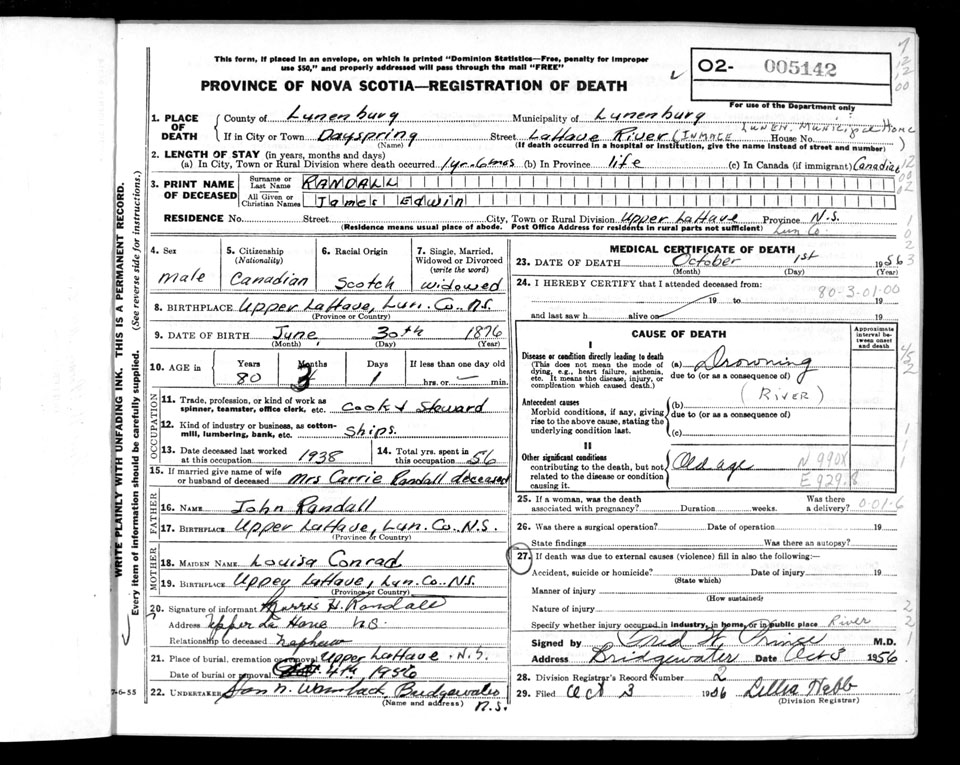 This form, if placed in an envelope, on which is printed "Dominion Statistics—Free, penalty for improper
use $50," and properly addressed will pass through the mail "FREE"
PROVINCE OF NOVA SCOTIA—REGISTRATION OF DEATH
O2- 005142
For use of the Department only
1. PLACE OF DEATH County of Lunenburg Municipality of Lunenburg
Lunen. Municipal Home
If in City or Town Dayspring Street LaHave River (INMATE House No. )
(Name) (If death occurred in a hospital or institution, give the name instead of street and number)
2. LENGTH OF STAY (in years, months and days)
(a) In City, Town or Rural Division where death occurred 1yr-6mos (b) In Province life (c) In Canada (if immigrant) Canadian
3. PRINT NAME OF DECEASED Surname or Last Name RANDALL
All Given or Christian Names James Edwin
RESIDENCE No. Street City, Town or Rural Division Upper LaHave Province N.S.
(Residence means usual place of abode. Post Office Address for residents in rural parts not sufficient) Lun Co.
4. Sex male
5. Citizenship (Nationality) Canadian
6. Racial Origin Scotch
7. Single, Married, Widowed or Divorced (write the word) widowed
8. BIRTHPLACE Upper LaHave, Lun. Co. N.S.
(Province or Country)
9. DATE OF BIRTH June 30th 1876
(Month) (Day) (Year)
10. AGE in Years 80 Months 3 Days 1 If less than one day old hrs. or — min.
OCCUPATION
11. Trade, profession, or kind of work as spinner, teamster, office clerk, etc. Cook & Steward
12. Kind of industry or business, as cotton-mill, lumbering, bank, etc. Ships.
13. Date deceased last worked at this occupation 1938
14. Total yrs. spent in this occupation 56
15. If married give name of wife or husband of deceased Mrs Carrie Randall deceased
FATHER
16. NAME John Randall
17. BIRTHPLACE Upper LaHave, Lun. Co. N.S.
(Province or Country)
MOTHER
18. MAIDEN NAME Louisa Conrad
19. BIRTHPLACE Upper LaHave, Lun. Co. N.S.
(Province or Country)
20. Signature of informant H. Randall
Address Upper La Have N.S.
Relationship to deceased nephew
21. Place of burial, cremation or removal Upper LaHave. N.S.
Date of burial or removal 4th 1956
22. UNDERTAKER Bridgewater
(Name and address) N.S.
MEDICAL CERTIFICATE OF DEATH
23. DATE OF DEATH October 1st 1956
(Month) (Day) (Year)
24. I HEREBY CERTIFY that I attended deceased from:
80-3-01-00
19 to 19
and last saw h alive on 19
CAUSE OF DEATH
Approximate interval between onset and death
I
Disease or condition directly leading to death
(This does not mean the mode of dying, e.g., heart failure, asthenia, etc. It means the disease, injury, or complication which caused death.)
(a) Drowning
due to (or as a consequence of)
(RIVER)
Antecedent causes
Morbid conditions, if any, giving rise to the above cause, stating the underlying condition last.
(b)
due to (or as a consequence of)
(c)
II
Other significant conditions
contributing to the death, but not related to the disease or condition causing it.
Old age N 990X
E929.8
25. If a woman, was the death associated with pregnancy? Duration weeks. Was there a delivery? 0-01-6
26. Was there a surgical operation? Date of operation 19
State findings Was there an autopsy?
27. If death was due to external causes (violence) fill in also the following:—
Accident, suicide or homicide? Date of injury 19
(State which)
Manner of injury
(How sustained)
Nature of injury
Specify whether injury occurred in industry, in home, or in public place River
Signed by Fred W. M.D.
Address Bridgewater Date Oct 3 1956
28. Division Registrar's Record Number 2
29. Filed Oct 3 1956 Webb
(Division Registrar)
WRITE PLAINLY WITH UNFADING INK. THIS IS A PERMANENT RECORD.
Every item of information should be carefully supplied. (See reverse side for instructions.)
7-6-55